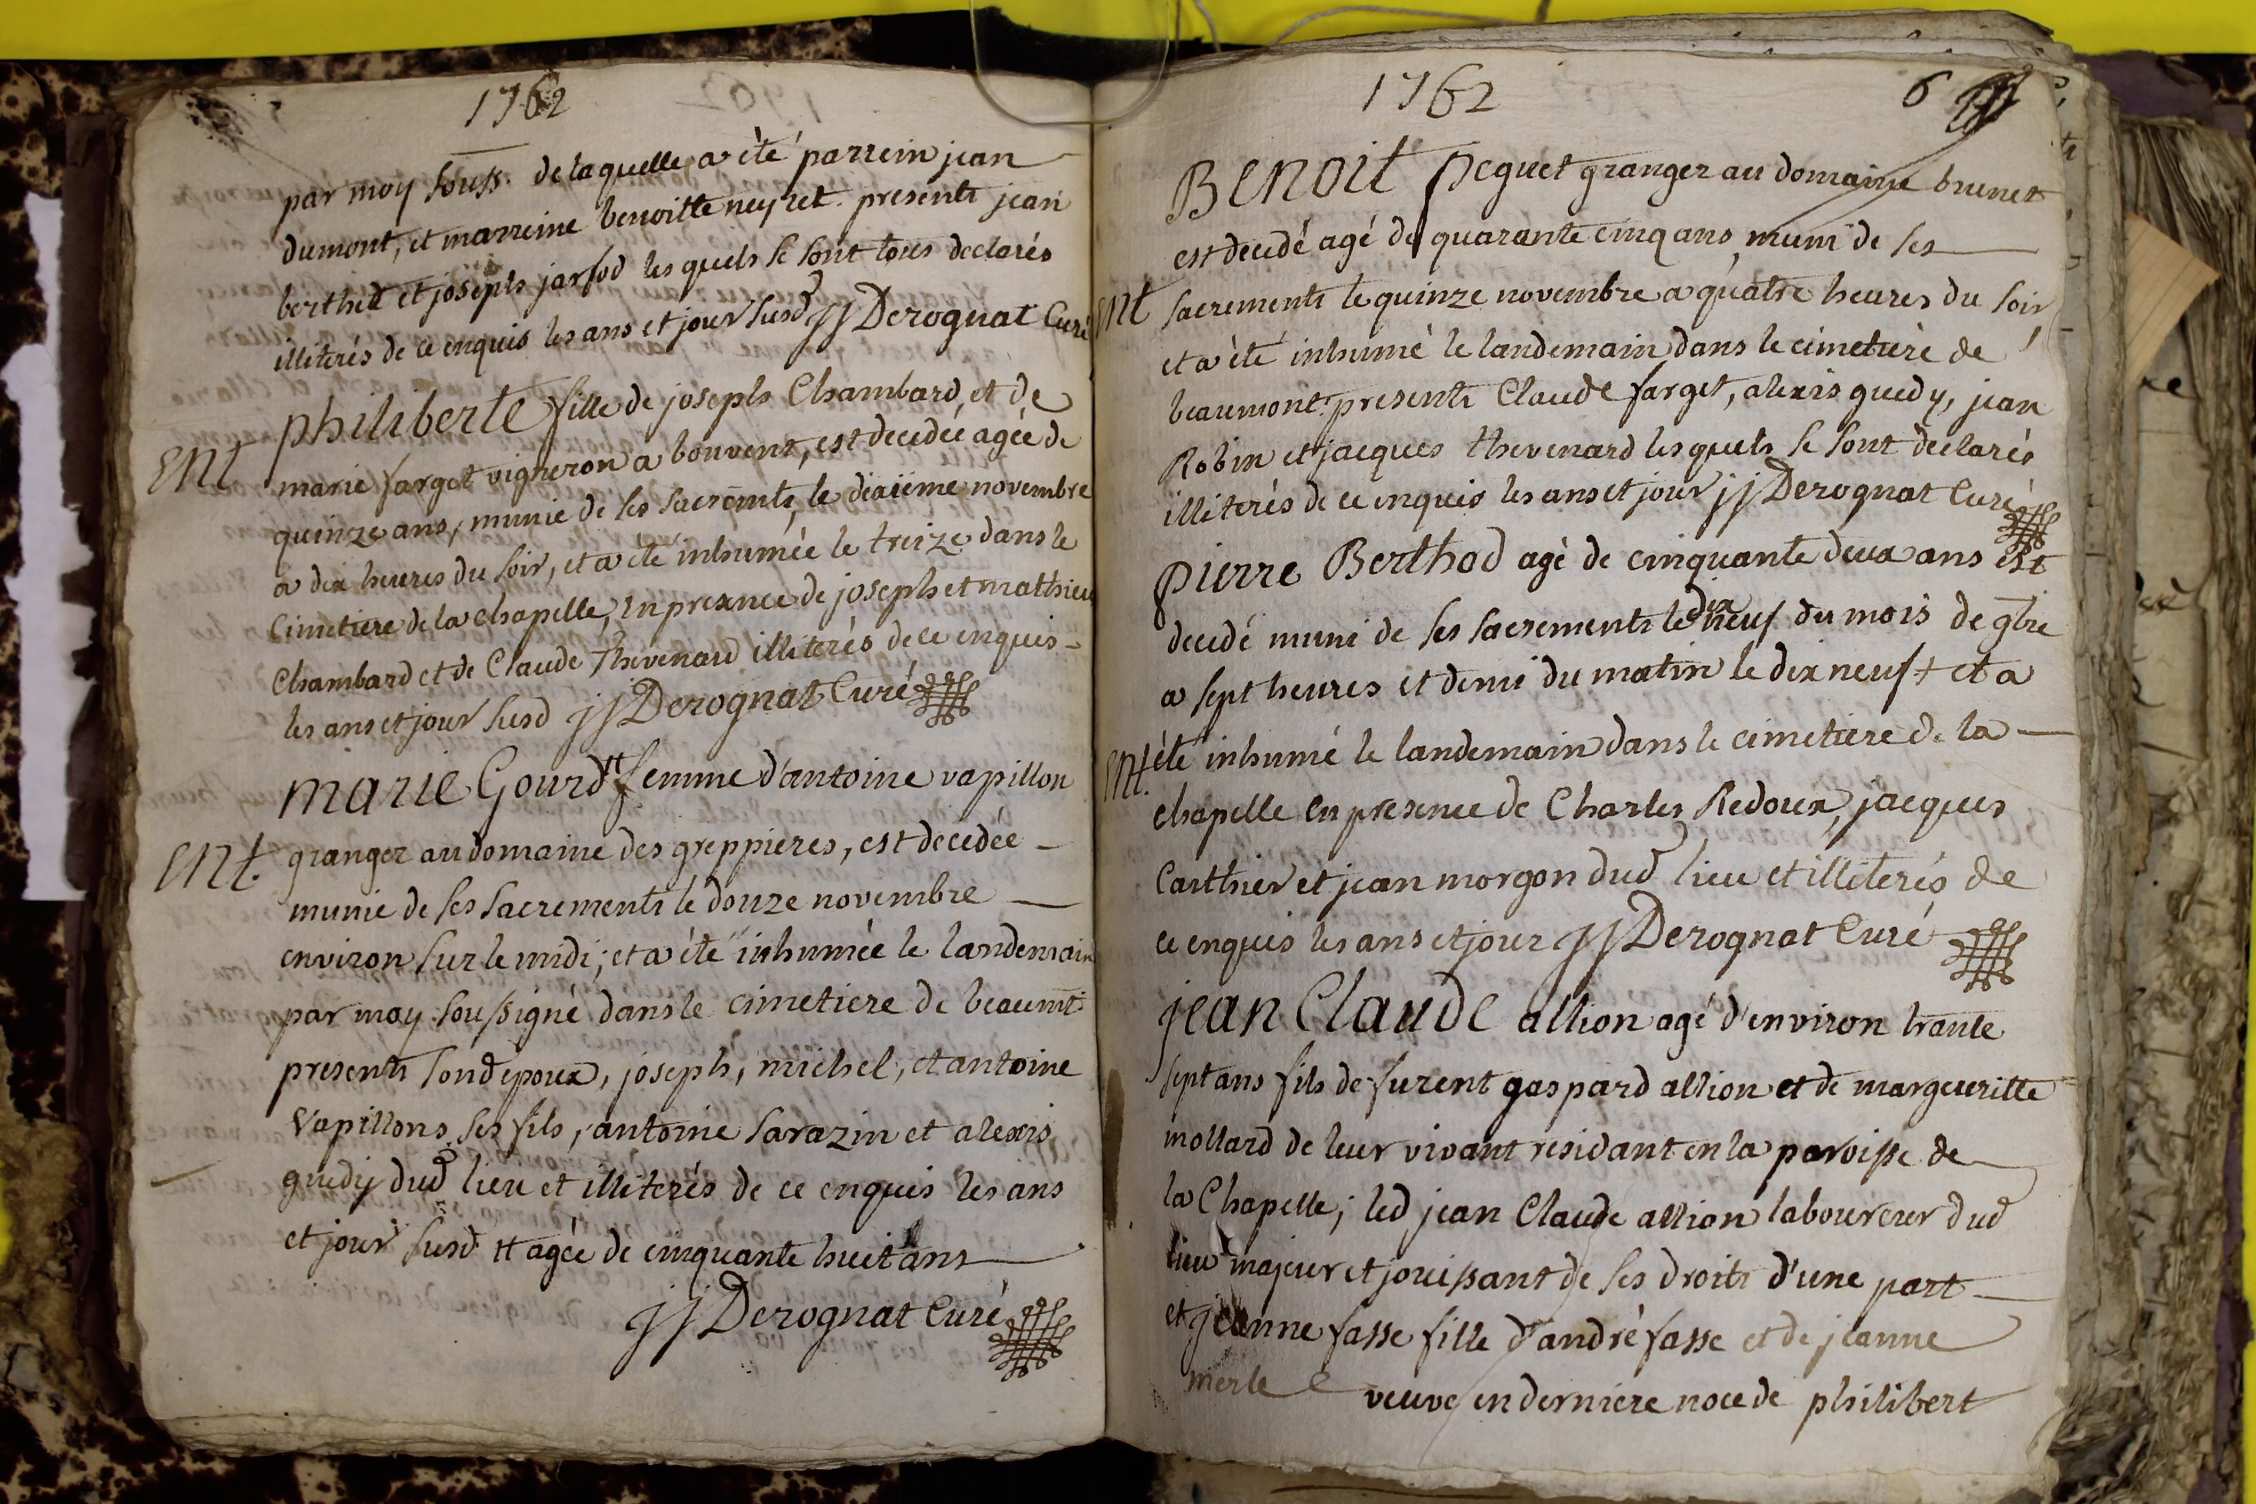 1762
par moy souss. de laquelle a été parrein jean
dumont, et marreine benoitte neyret. presents jean
berthet et joseph jarsod les quels se sont tous declarés
illiterés de ce enquis les ans et jour susd jj Derognat Curé
philiberte fille de joseph Chambard, et de
Ent.
marie farget vigneron a bouvent, est decedée agée de
quinze ans, munie de ses sacremts, le dixiéme novembre
a dix heures du soir, et a été inhumée le treize dans le
Cimetiere de la chapelle, en presence de joseph et mathieu
Chambard et de Claude Thevenard illiterés de ce enquis
les ans et jour susd jj Derognat Curé
marie Gourd tt femme d'antoine vapillon
Ent.
granger au domaine des greppieres, est decedée
munie de ses sacrements le douze novembre
environ sur le midi; et a été inhumée le landemain
par moy soussigné dans le cimetiere de beaumt
presents sond epoux, joseph, michel, et antoine
Vapillons ses fils, antoine sarazin et alexis
guedy dud lieu et illiterés de ce enquis les ans
et jour susd tt agée de cinquante huit ans
jj Derognat Curé
1762
6
Benoit peguet granger au domaine brunet
est decedé agé de quarante cinq ans, muni de ses
Ent
sacrements le quinze novembre a quatre heures du soir
et a été inhumé le landemain dans le cimetiere de
beaumont. presents Claude farget, alexis guedy, jean
Robin et jacques thevenard les quels se sont declarés
illiterés de ce enquis les ans et jour jj Derognat Curé
pierre Berthod agé de cinquante deux ans est
decedé muni de ses sacrements le dix neuf du mois de 9bre
a sept heures et demi du matin le dix neuf + et a
Ent.
été inhumé le landemain dans le cimetiere de la
chapelle en presence de Charles Redoux, jacques
Carthier et jean morgon dud lieu et illiterés de
ce enquis les ans et jour jj Derognat Curé
jean Claude allion agé d'environ trante
sept ans fils de furent gaspard allion et de margueritte
mollard de leur vivant residant en la paroisse de
la Chapelle; led jean Claude allion laboureur dud
lieu majeur et jouissant de ses droits d'une part
et jeanne fasse fille d'andré fasse et de jeanne
merle veuve en derniere noce de philibert